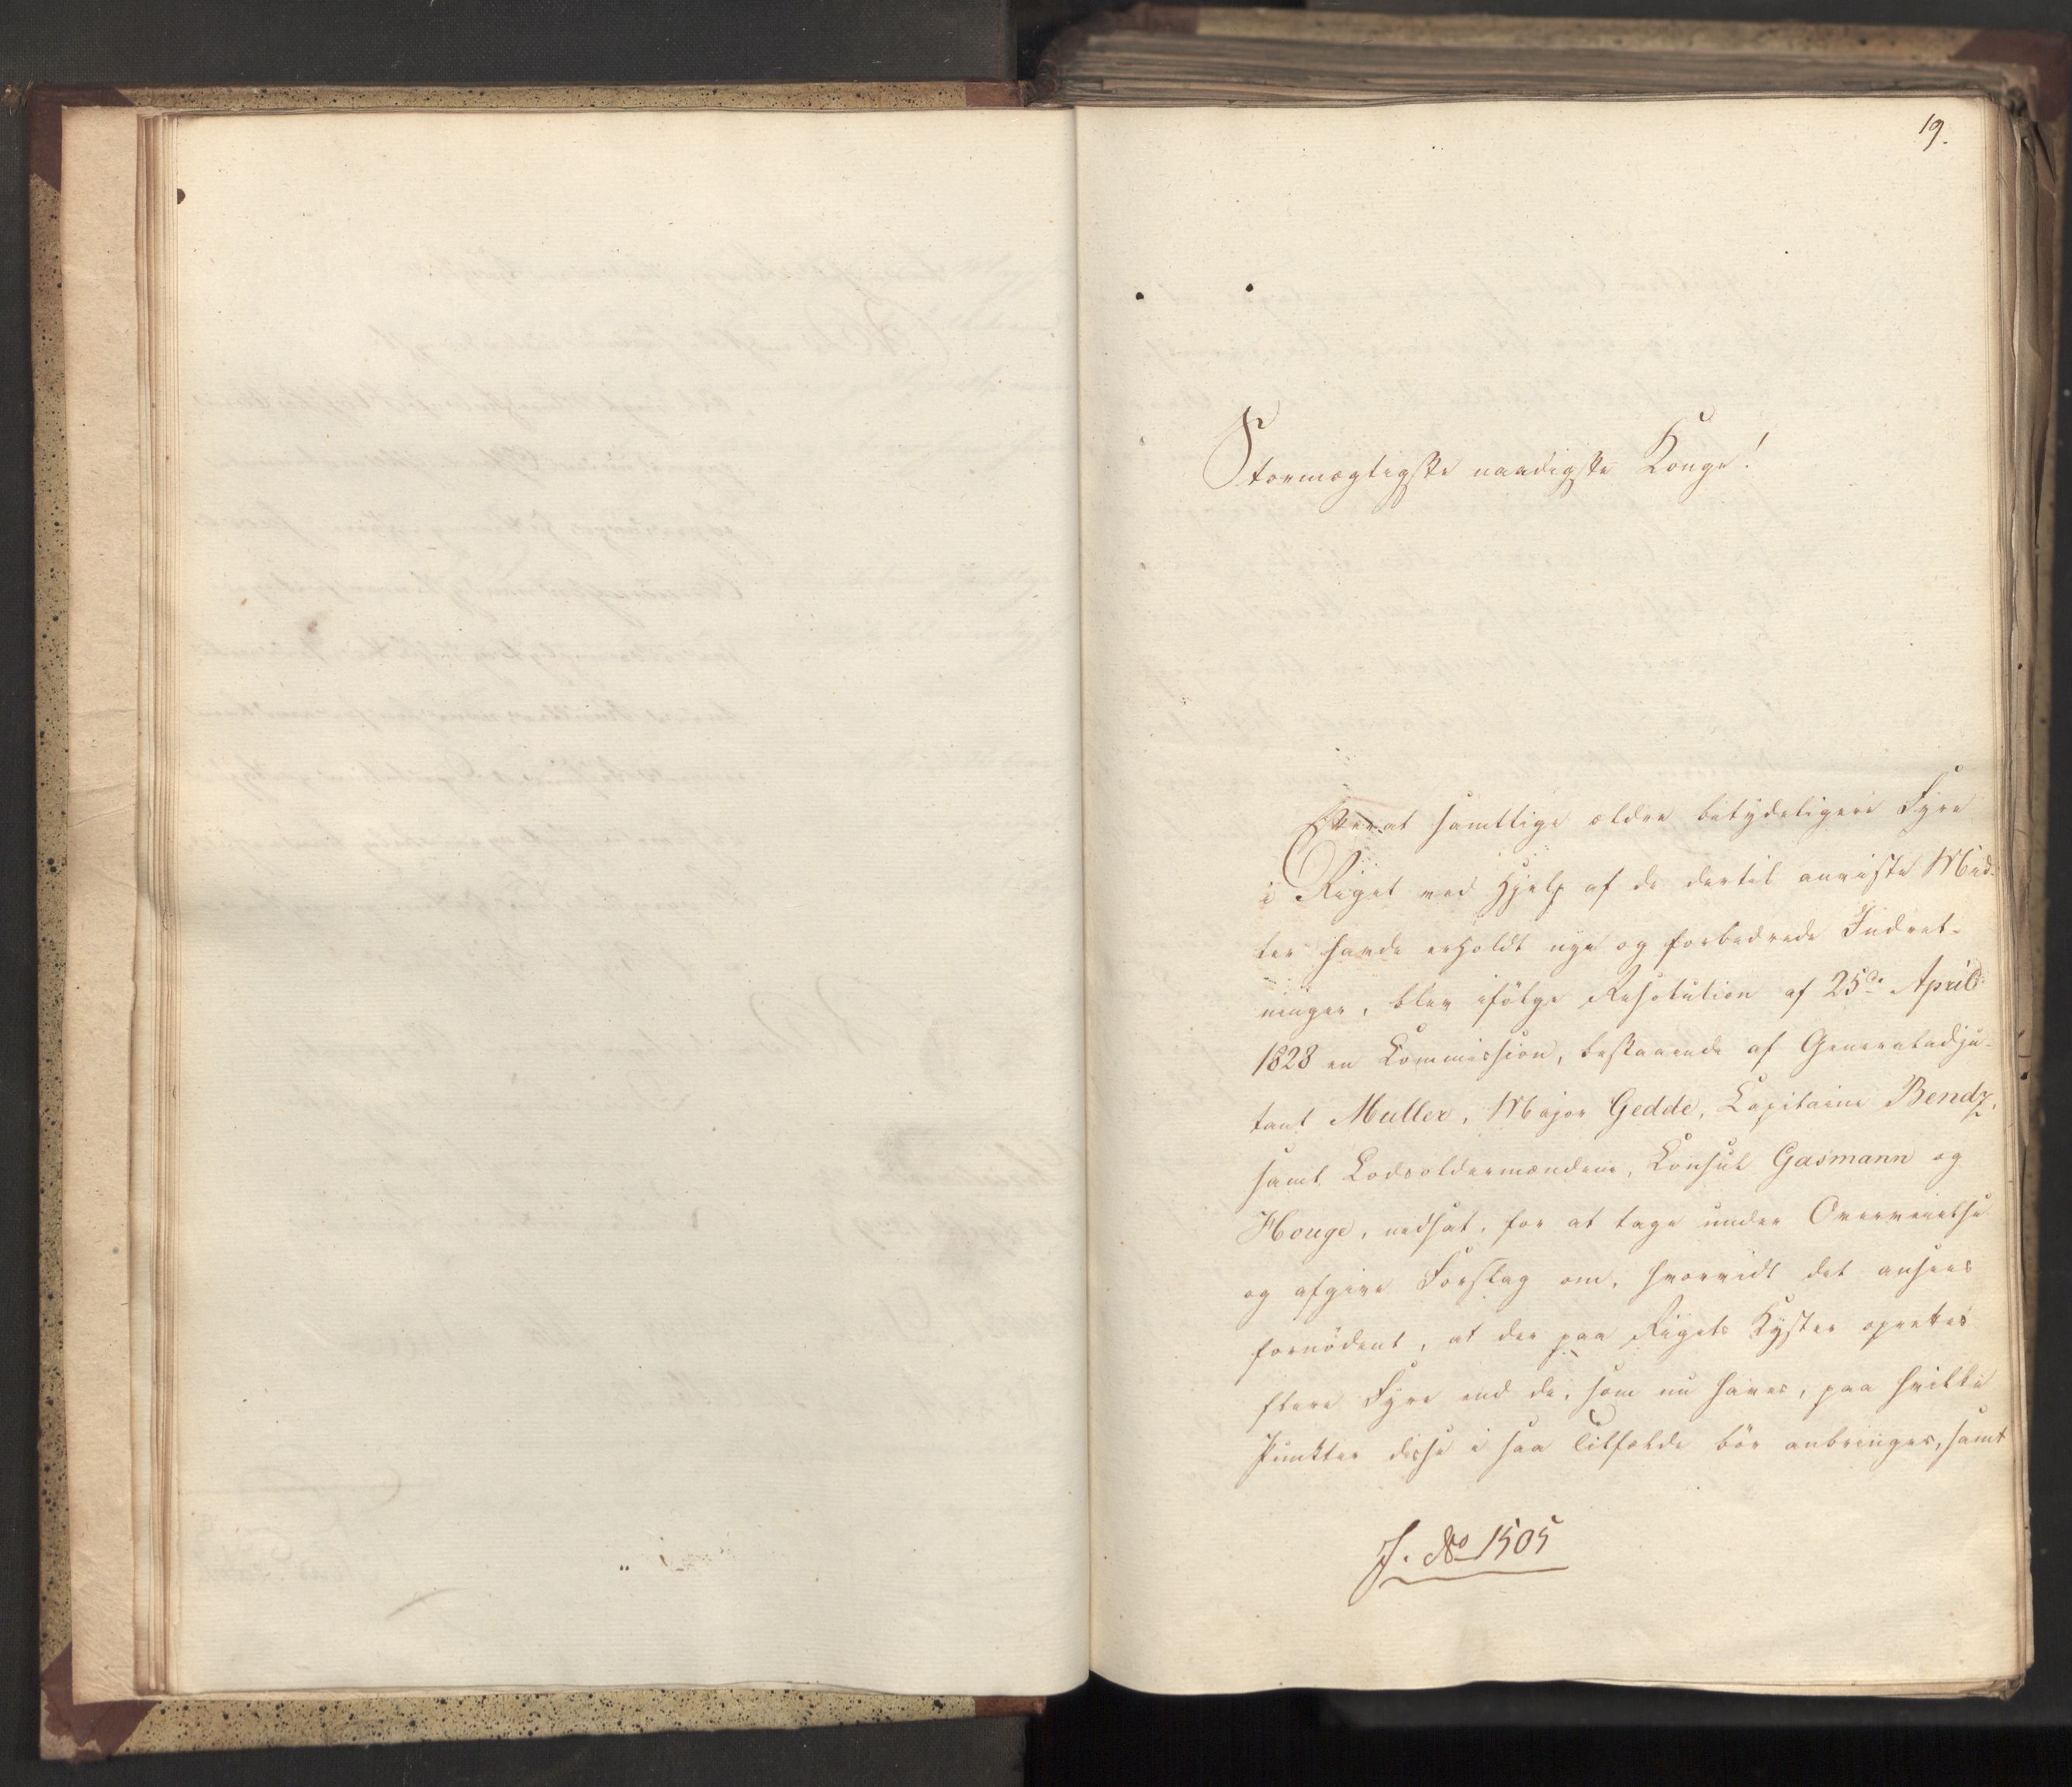 19.
Stormægtigste naadigste Konge!
Efterat samtlige ældre betydeligere Fyre
i Riget ved Hjelp af de dertil anviste Mid-
ler havde erholdt nye og forbedrede Indret-
ninger, blev ifölge Resolution af 25de April
1828 en Kommission, bestaaende af Generaladju-
tant Muller, Major Gedde, Kapitaine Bendz,
samt Lodsoldermændene, Konsul Gasmann og
Houge, nedsat, for at tage under Overveielse
og afgive Forslag om, hvorvidt det ansees
fornödent, at der paa Rigets Kyster oprettes
flere Fyre end de, som nu haves, paa hvilke
Punkter disse i saa Tilfælde bör anbringes, samt
J. No 1505